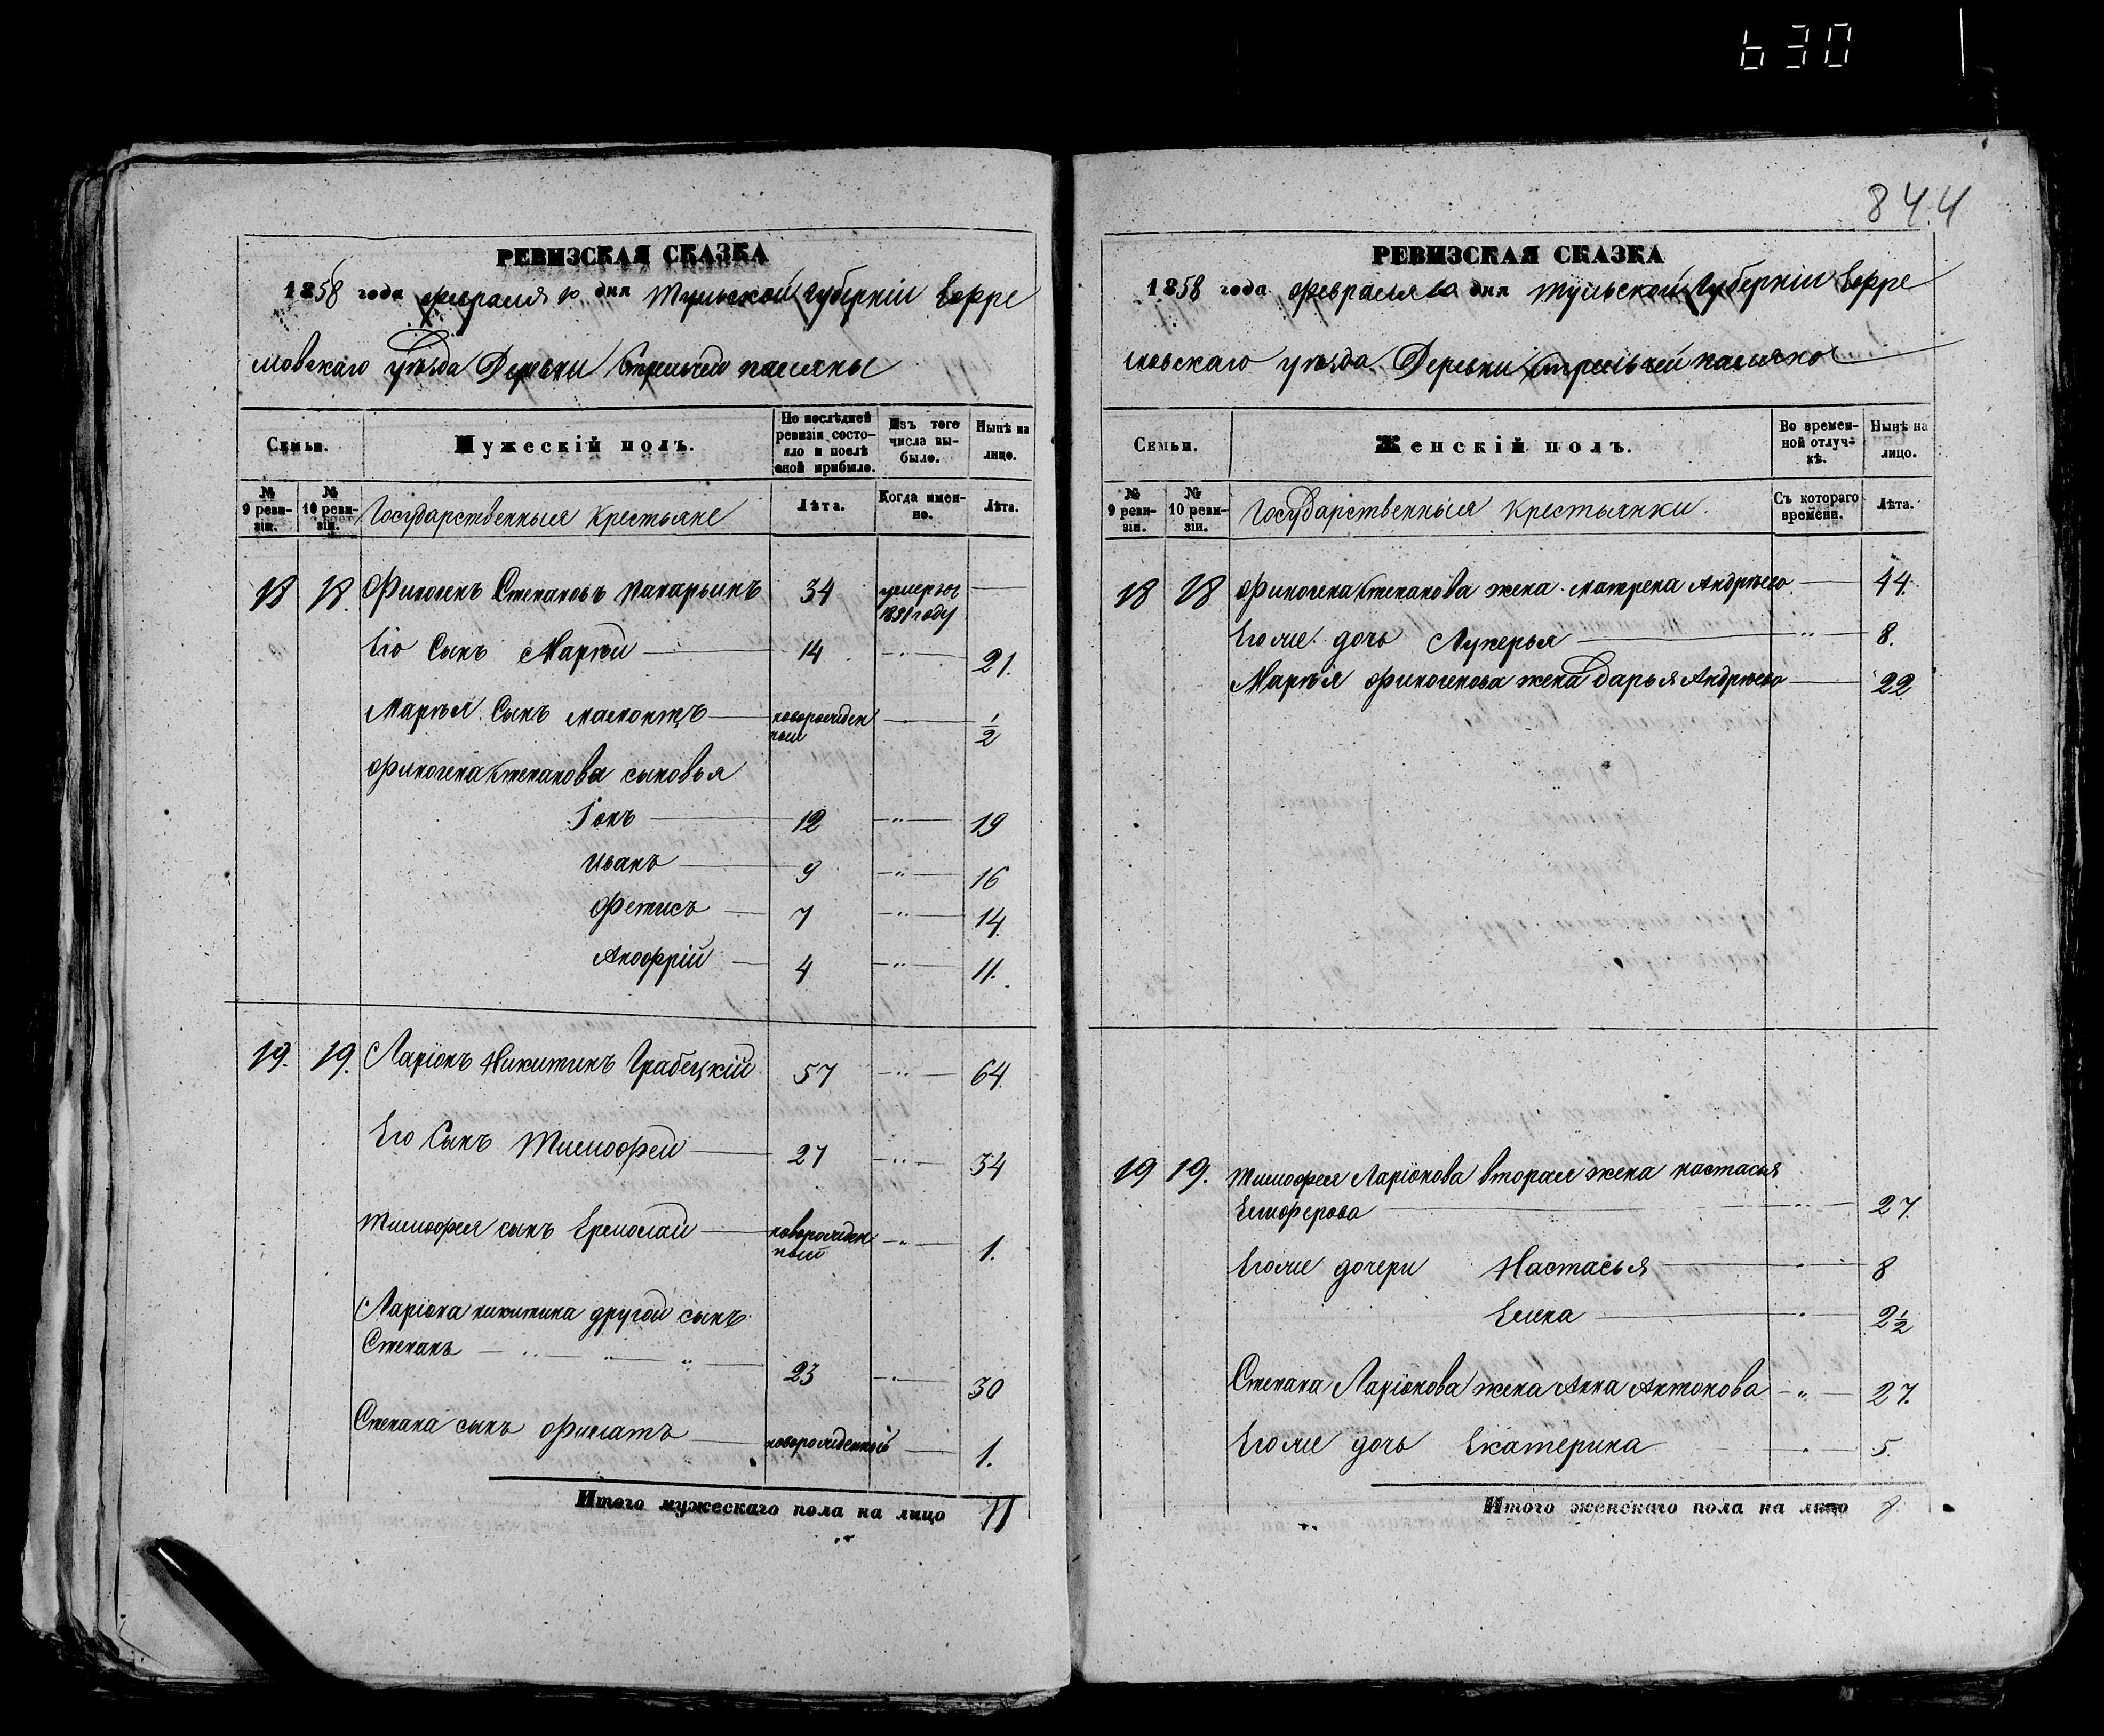 630
844
РЕВИЗСКАЯ СКАЗКА
1858 года февраля 10 дня Тульской Губерніи Ефре
мовскаго уѣзда Деревни Стрельчей поляны
Семьи.
Мужескій полъ.
По послѣдней ревизіи состояло и послѣ оной прибыло.
Изъ того числа выбыло.
Нынѣ на лицо.
№ 9 ревизіи.
№ 10 ревизіи.
Государственныя Крестьяне
Лѣта.
Когда именно.
Лѣта.
18 18. Финогенъ Степановъ 34 умеръ въ 1851 году —
Его Сынъ Маркей 14 21.
Маркѣя Сынъ Мамонтъ новорожденный 1/2
Финогена Степанова сыновья
Іонъ 12 „ 19
Иванъ 9 „ 16
Фетисъ 7 „ 14.
Анофрій 4 „ 11.
19. 19. Ларіонъ Никитинъ Грабецкій 57 „ 64.
Его Сынъ Тимофей 27 „ 34
Тимофея сынъ Ермолай новорожденный „ 1.
Ларіона никитина другой сынъ
Степанъ 23 „ 30
Степана сынъ Филатъ новорожденный 1.
Итого мужескаго пола на лицо 11
РЕВИЗСКАЯ СКАЗКА
1858 года февраля 10 дня Тульской Губерніи Ефре
мовскаго уѣзда Деревни Стрельчей поляны
Семьи.
Женскій полъ.
Во временной отлучкѣ.
Нынѣ на лицо.
№ 9 ревизіи.
№ 10 ревизіи.
Государственныя Крестьянки.
Съ котораго времени.
Лѣта.
18 18 Финогена Степанова жена Матрена Андрѣева — 44.
Его же дочь Лукерья „ 8.
Маркѣя Финогенова жена Дарья Андрѣева — 22
19 19. Тимофея Ларіонова вторая жена настасья
Елиферова „ 27.
Его же дочери Настасья „ 8
Елена „ 2 1/2
Степана Ларіонова жена Анна Антонова „ 27.
Его же дочь Екатерина „ 5.
Итого женскаго пола на лицо 8.